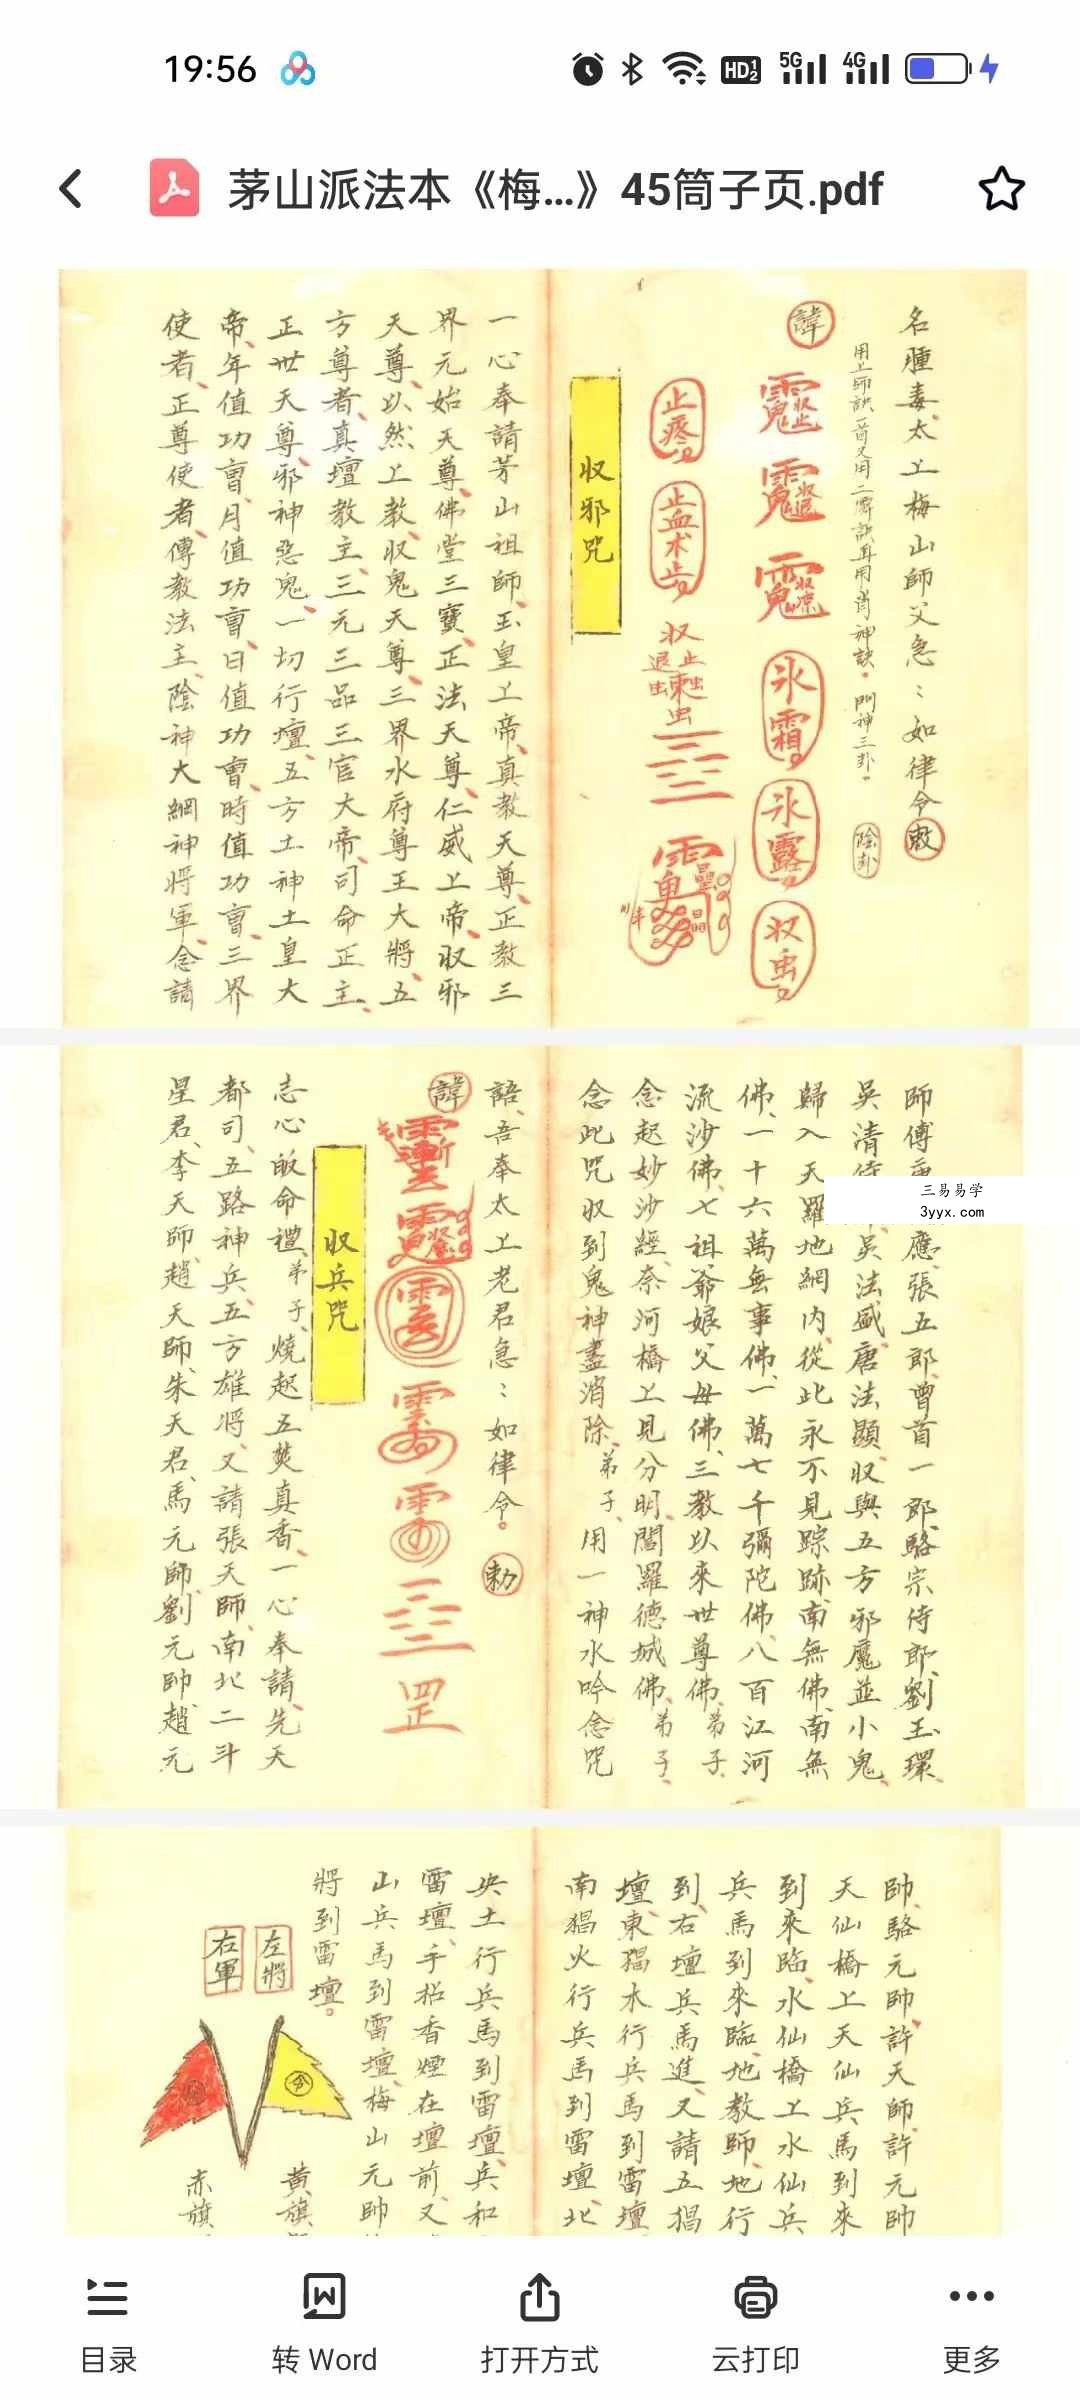 19:56
HD 1 2 5G 4G
茅山派法本《梅...》45筒子页.pdf
名腫毒太上梅山師父急:如律令敕
用上師訣
門神三卦。
陰卦
諱
氷霜
氷露
収虫
止疼
止血
収邪咒
一心奉請茅山祖師玉皇上帝真教天尊正教三
界元始天尊佛堂三寶正法天尊仁威上帝収邪
天尊以然上教収鬼天尊三界水府尊王大將五
方尊者真壇教主三元三品三官大帝司命正主
正世天尊邪神惡鬼一切行壇五方土神土皇大
帝年值功曹月值功曹日值功曹時值功曹三界
使者正尊使者傳教法主陰神大網神將軍念請
師傅
應張五郎曾首一郎駱宗侍郎劉王環
吳清
吳法盛唐法顯収與五方邪魔並小鬼
歸入天羅地網内從此永不見踪跡南無佛南無
佛一十六萬無事佛一萬七千彌陀佛八百江河
流沙佛七祖爺娘父母佛三教以來世尊佛弟子
念起妙沙經奈河橋上見分明閻羅德城佛弟子
念此咒収到鬼神盡消除弟子用一神水吟念咒
三易易学
3yyx.com
語吾奉太上老君急:如律令。勅
諱
罡
収兵咒
志心皈命禮弟子燒起五焚真香一心奉請先天
都司五路神兵五方雄將又請張天師南北二斗
星君李天師趙天師朱天君馬元帥劉元帥趙元
帥駱元帥許天師許元帥
天仙橋上天仙兵馬到來
到來臨水仙橋上水仙兵
兵馬到來臨地教師地行
到右壇兵馬進又請五猖
壇東猖木行兵馬到雷壇
南猖火行兵馬到雷壇北
央土行兵馬到雷壇兵和
雷壇手招香煙在壇前又
山兵馬到雷壇梅山元帥
將到雷壇。
左將
右軍
令
黃旗
赤旗
目录
转 Word
打开方式
云打印
更多